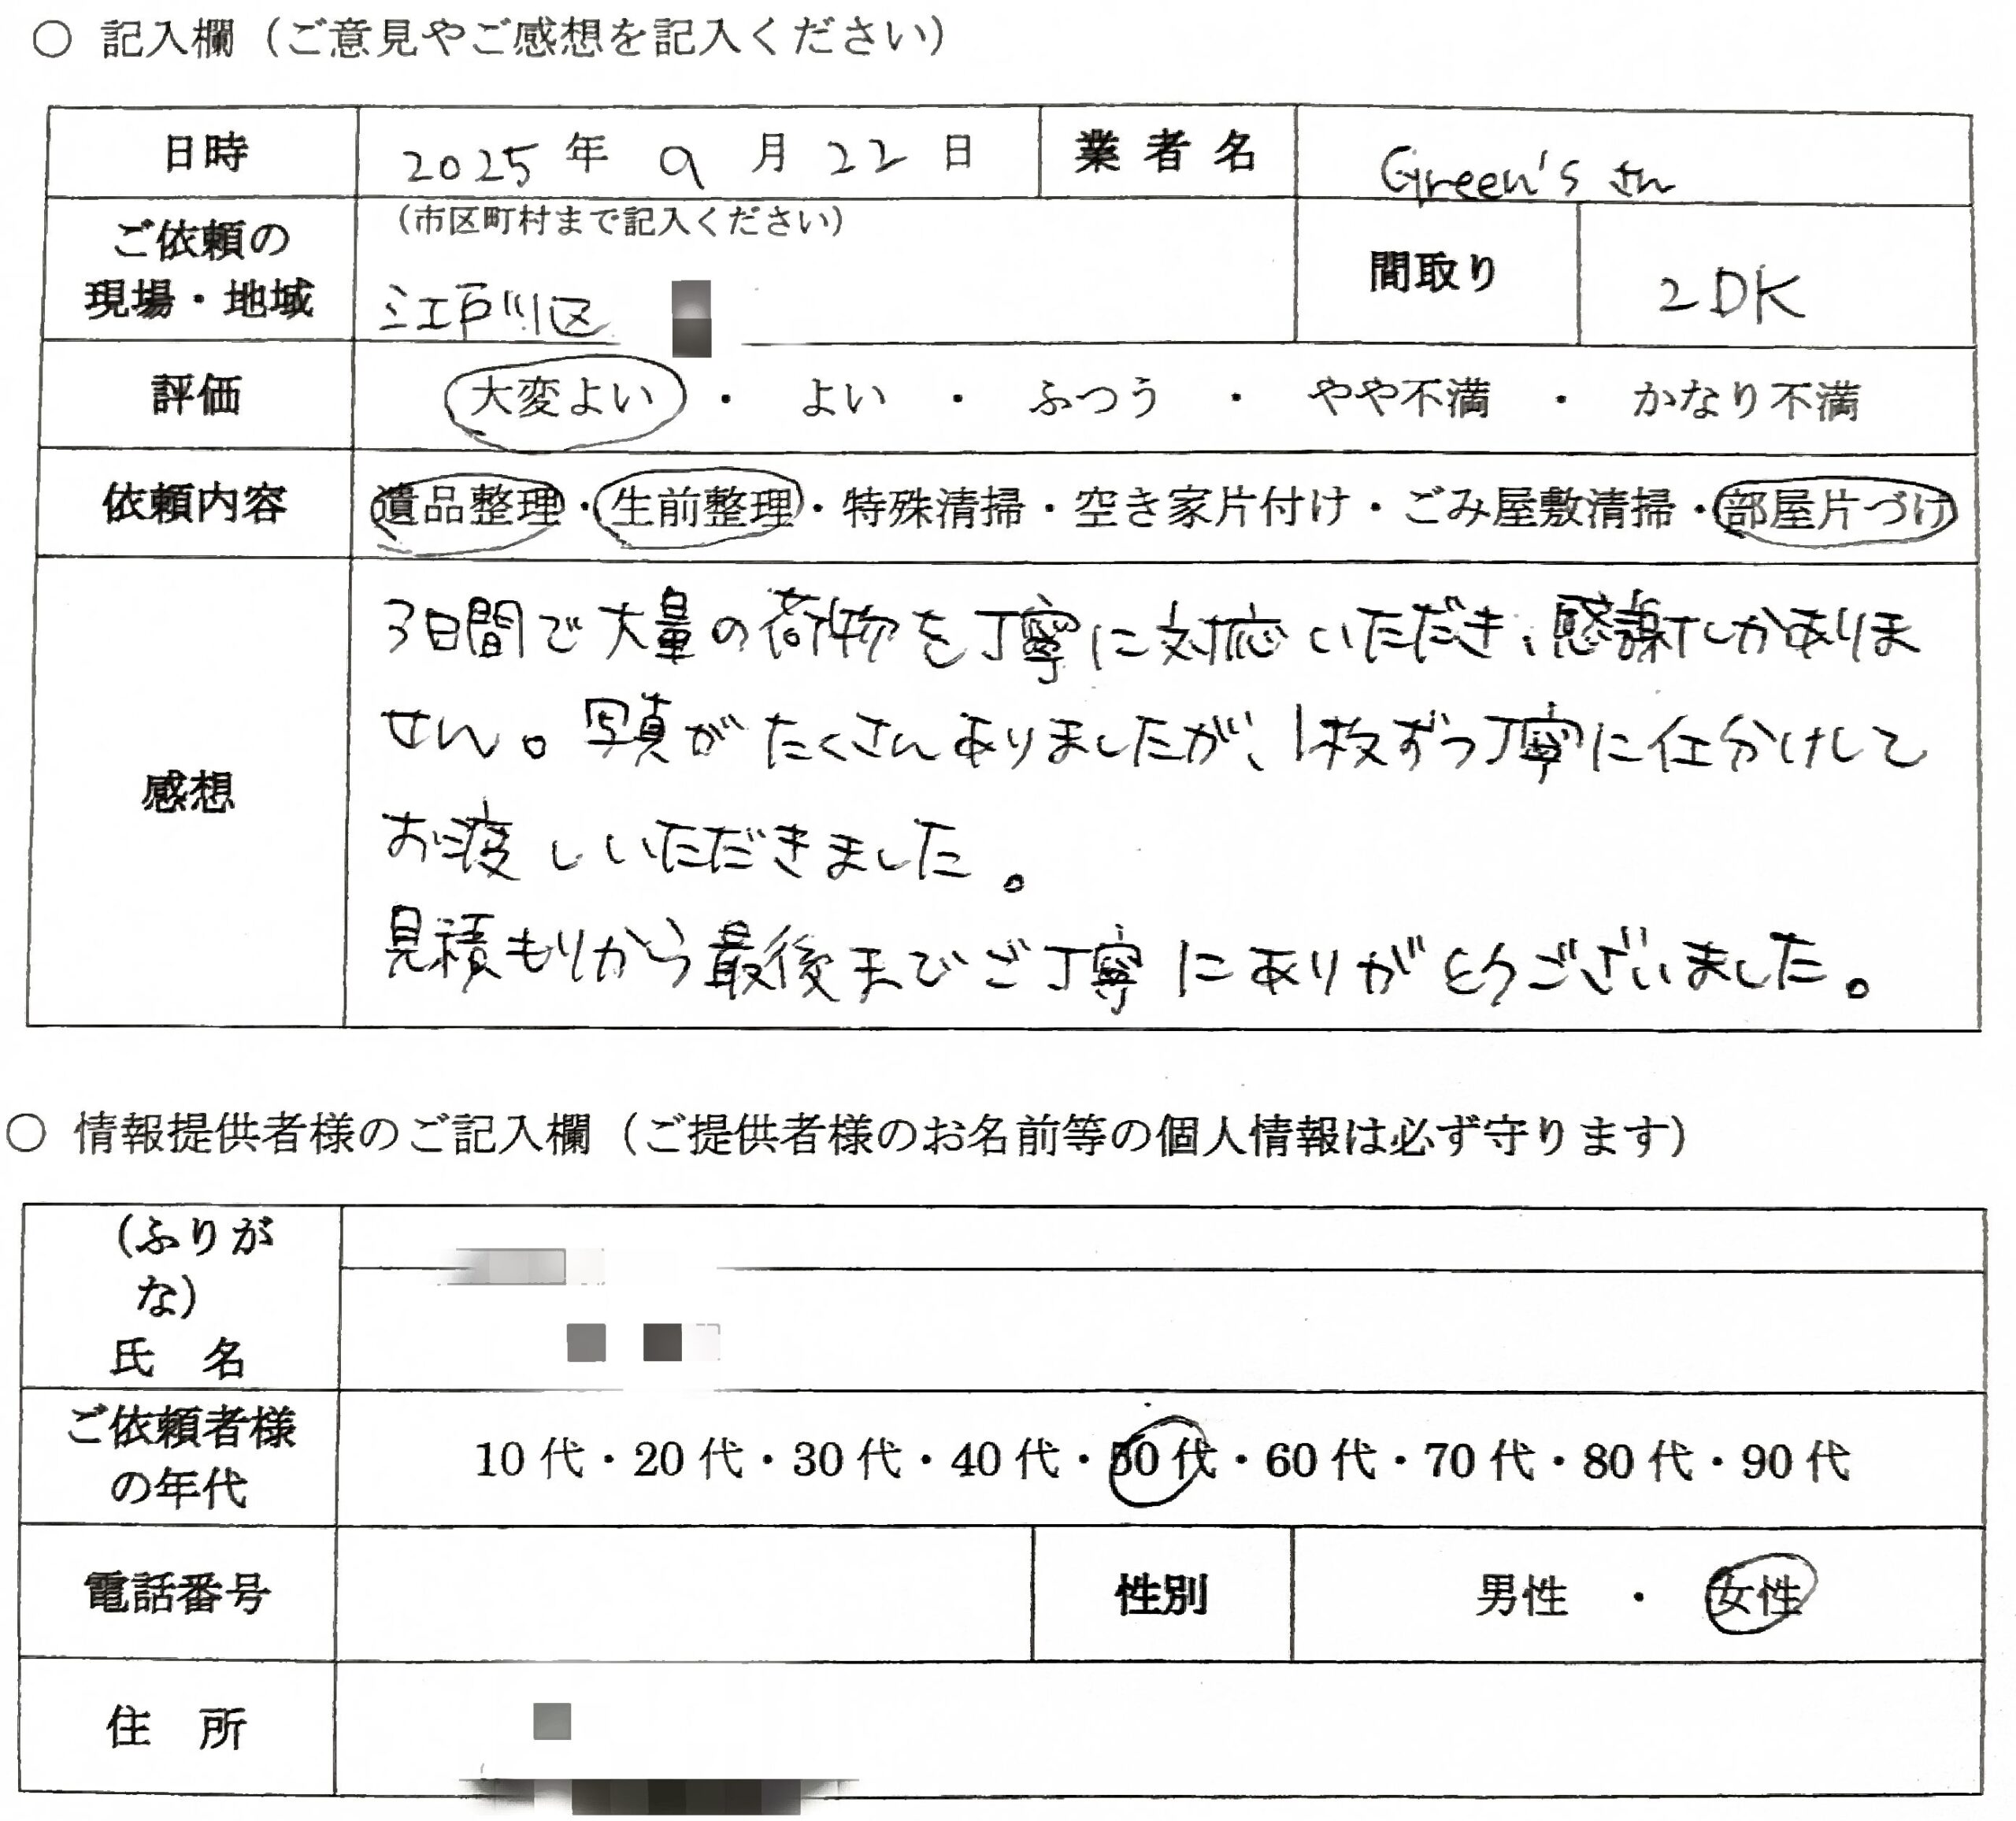 ○ 記入欄（ご意見やご感想を記入ください）
日時 2025 年 9 月 22 日 業者名 Green's さん
ご依頼の
現場・地域
（市区町村まで記入ください）
江戸川区
間取り 2DK
評価 大変よい ・ よい ・ ふつう ・ やや不満 ・ かなり不満
依頼内容 遺品整理・生前整理・特殊清掃・空き家片付け・ごみ屋敷清掃・部屋片づけ
感想
3日間で大量の荷物を丁寧に対応いただき、感謝しかありま
せん。写真がたくさんありましたが、1枚ずつ丁寧に仕分けして
お渡しいただきました。
見積もりから最後までご丁寧にありがとうございました。
○ 情報提供者様のご記入欄（ご提供者様のお名前等の個人情報は必ず守ります）
（ふりが
な）
氏 名
ご依頼者様
の年代
10代・20代・30代・40代・50代・60代・70代・80代・90代
電話番号 性別 男性 ・ 女性
住 所